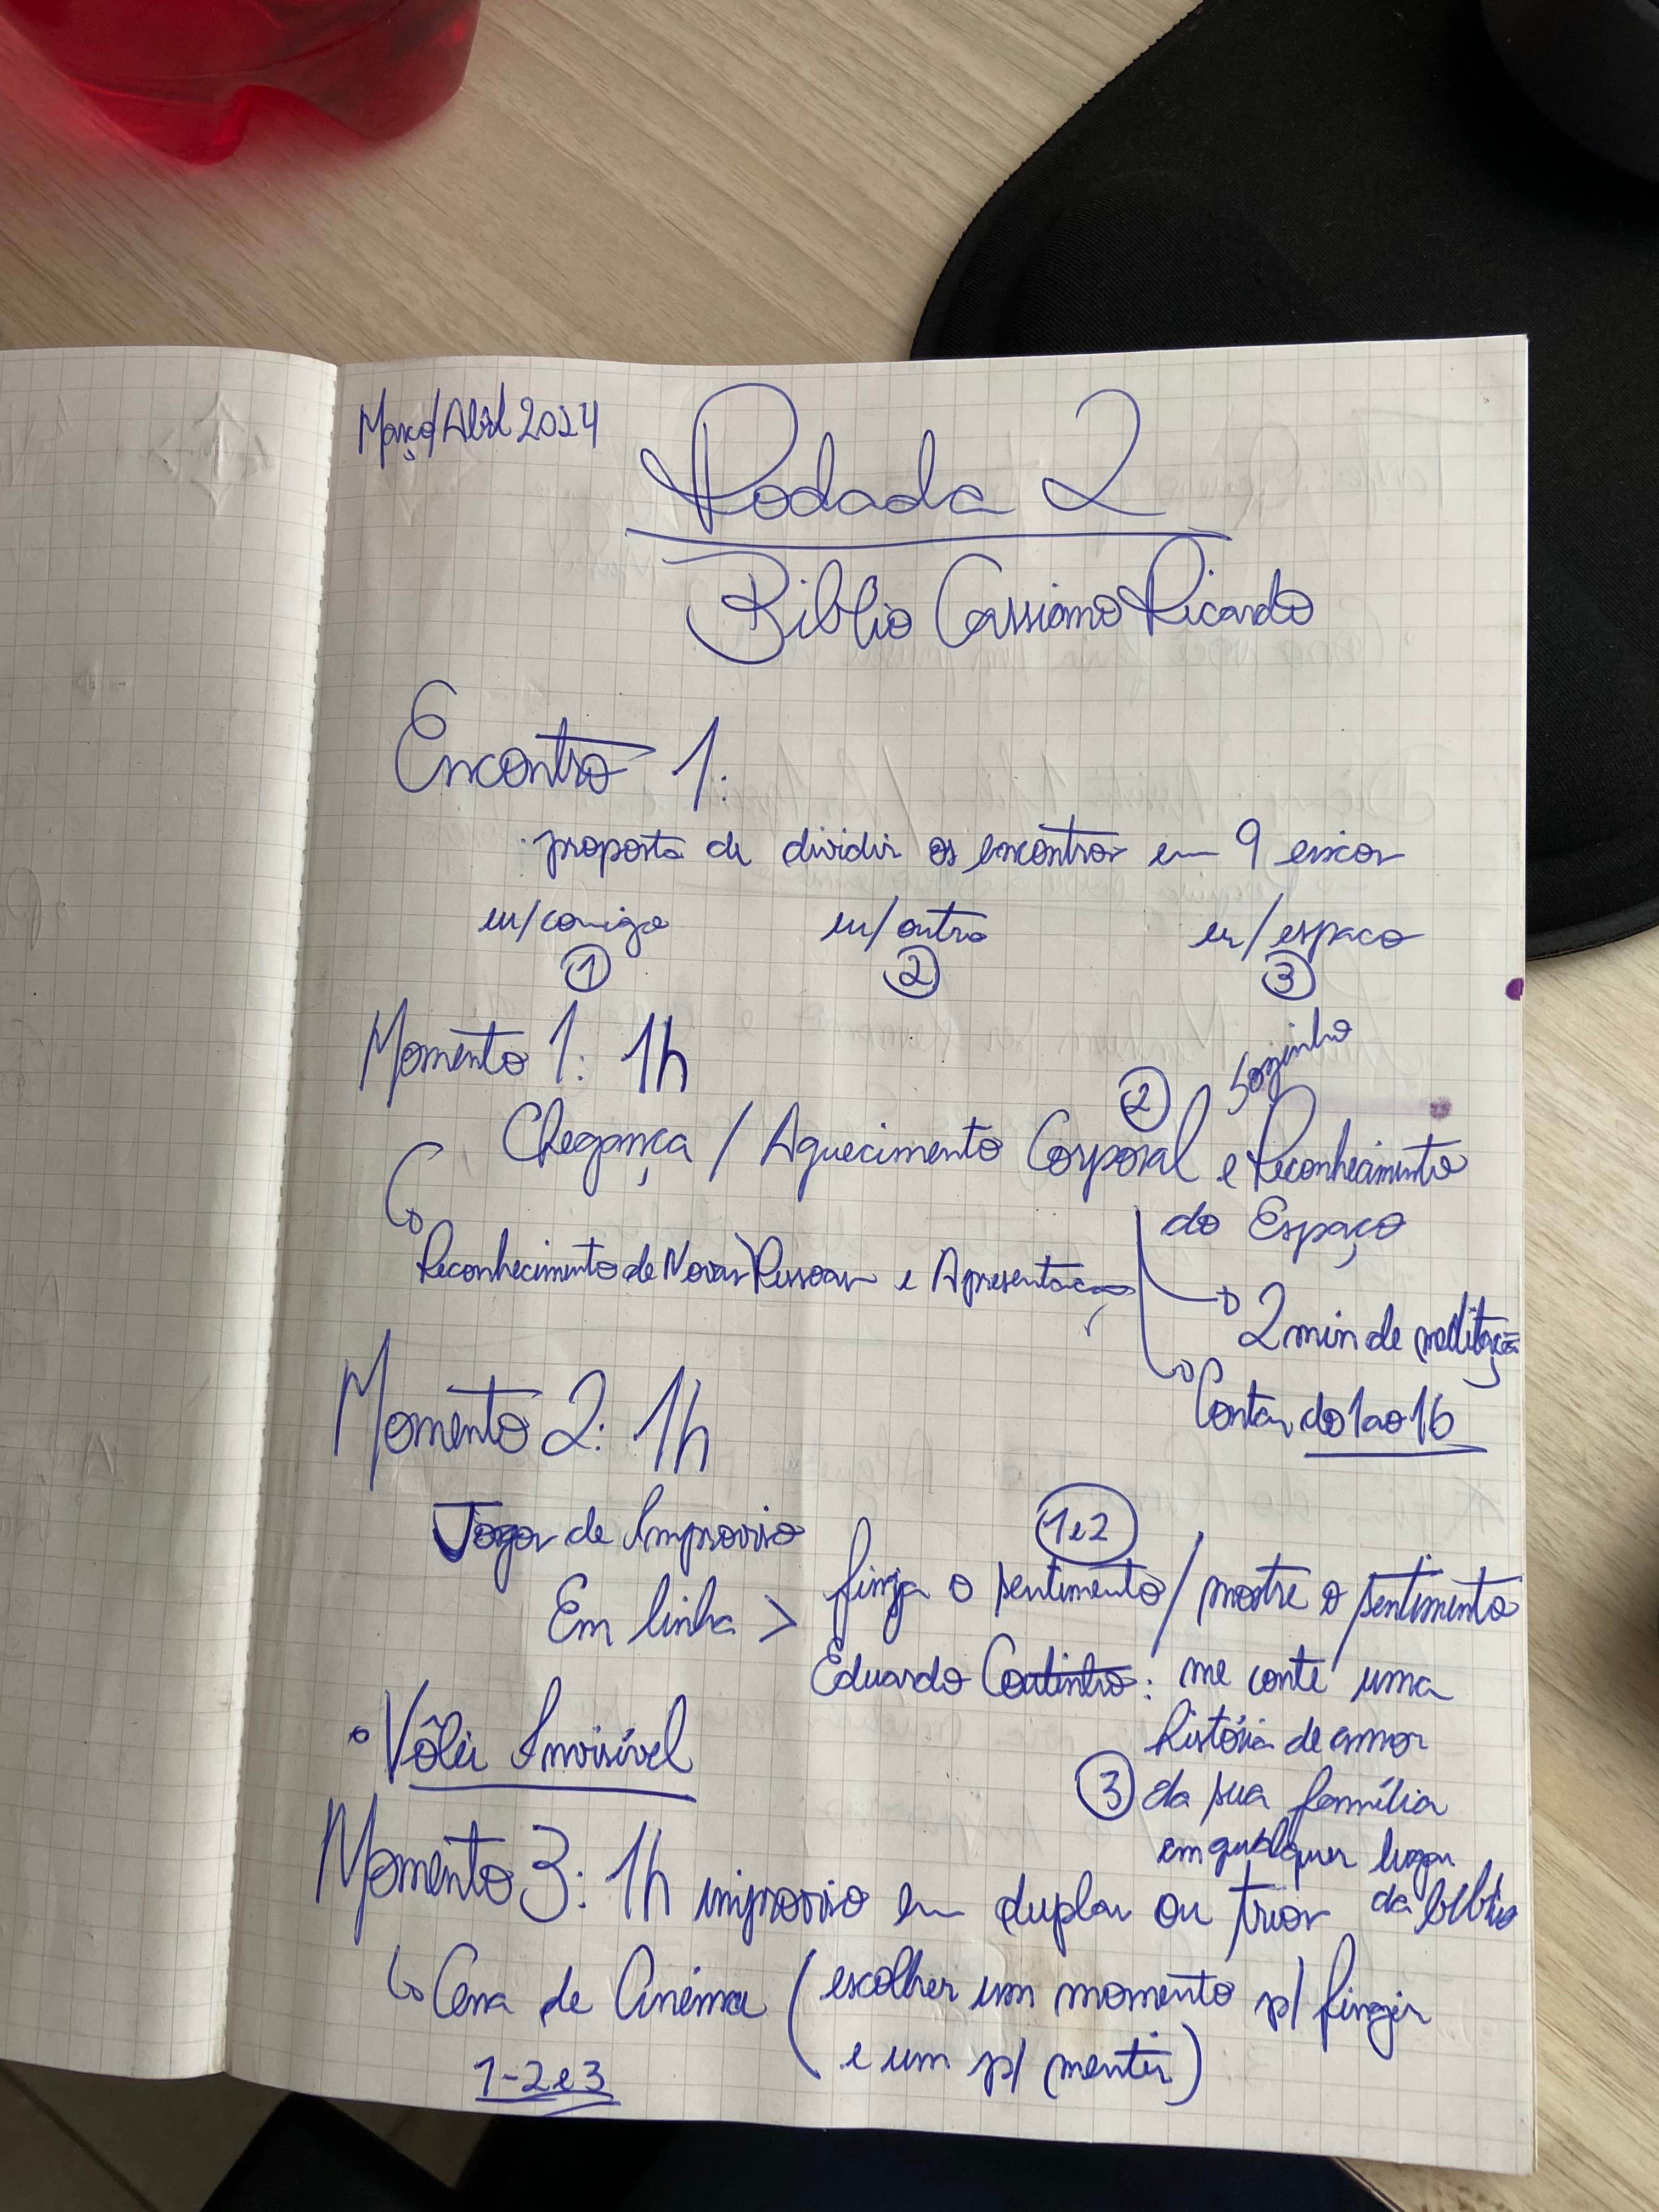 Março/Abril 2024
Rodada 2
Biblio Cassiano Ricardo
Encontro 1:
proposta de dividir os encontros em 9 eixos
eu/comigo eu/outro eu/espaço
1 2 3
Momento 1: 1h
2 sozinho
Chegança / Aquecimento Corporal e Reconhecimento
do Espaço
Reconhecimento de Novas Pessoas e Apresentação
2 min de meditação
Contar do 1 ao 16
Momento 2: 1h
Jogos de Improviso
1e2
Em linha > finja o sentimento / mostre o sentimento
Eduardo Coutinho: me conte uma
história de amor
• Vôlei Invisível
3 da sua família
em qualquer lugar
da biblio
Momento 3: 1h improviso em duplas ou trios
Cena de Cinema (escolher um momento p/ fingir
e um p/ mentir)
1-2e3